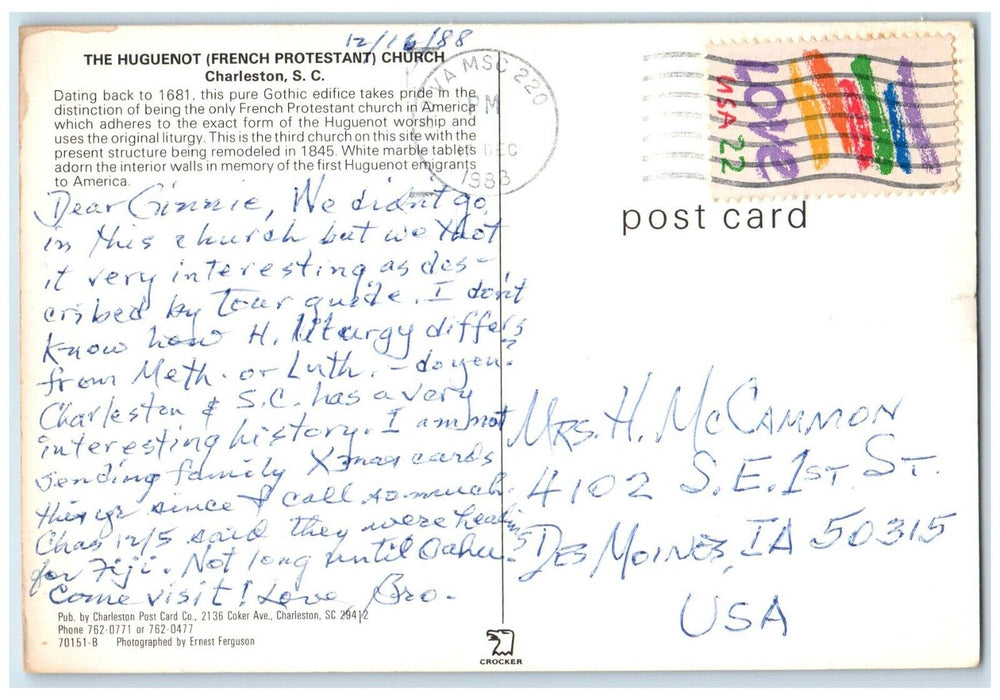 12/16/88
THE HUGUENOT (FRENCH PROTESTANT) CHURCH
Charleston, S. C.
Dating back to 1681, this pure Gothic edifice takes pride in the
distinction of being the only French Protestant church in America
which adheres to the exact form of the Huguenot worship and
uses the original liturgy. This is the third church on this site with the
present structure being remodeled in 1845. White marble tablets
adorn the interior walls in memory of the first Huguenot emigrants
to America.
Dear Ginnie, We didn't go
in this church but we thot
it very interesting as des-
cribed by tour guide. I don't
know how H. liturgy differs
from Meth. or Luth. - do you?
Charleston & S.C. has a very
interesting history. I am not
sending family Xmas cards
this yr since I call so much.
Chas 12/5 said they were heading
for Fiji. Not long until Oahu.
Come visit! Love, Bro.
Pub. by Charleston Post Card Co., 2136 Coker Ave., Charleston, SC 29412
Phone 762-0771 or 762-0477
70151-B Photographed by Ernest Ferguson
CROCKER
VA MSC 220
PM
DEC
1988
LOVE
USA 22
post card
MRS. H. McCAMMON
4102 S.E. 1ST ST.
DES MOINES, IA 50315
USA